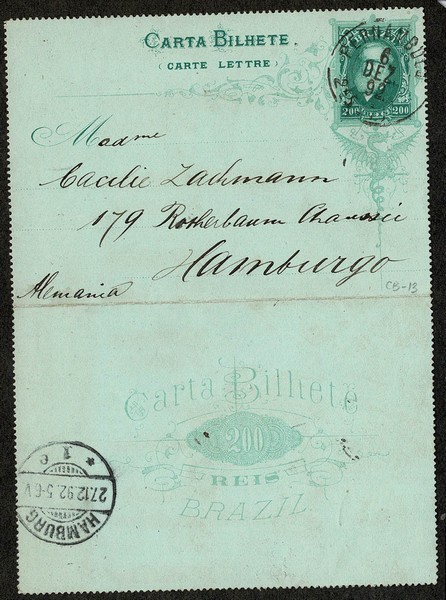 CARTA BILHETE.
(CARTE LETTRE)
PERNAMBUCO
6
DEZ
92
200 REIS 200
Madme
Cacilie Zachmann
179 Rotherbaum Chaussée
Hamburgo
Alemania
CB-13
Carta Bilhete
200
REIS
BRAZIL
HAMBURG
27.12.92.5-6V
* 1 e